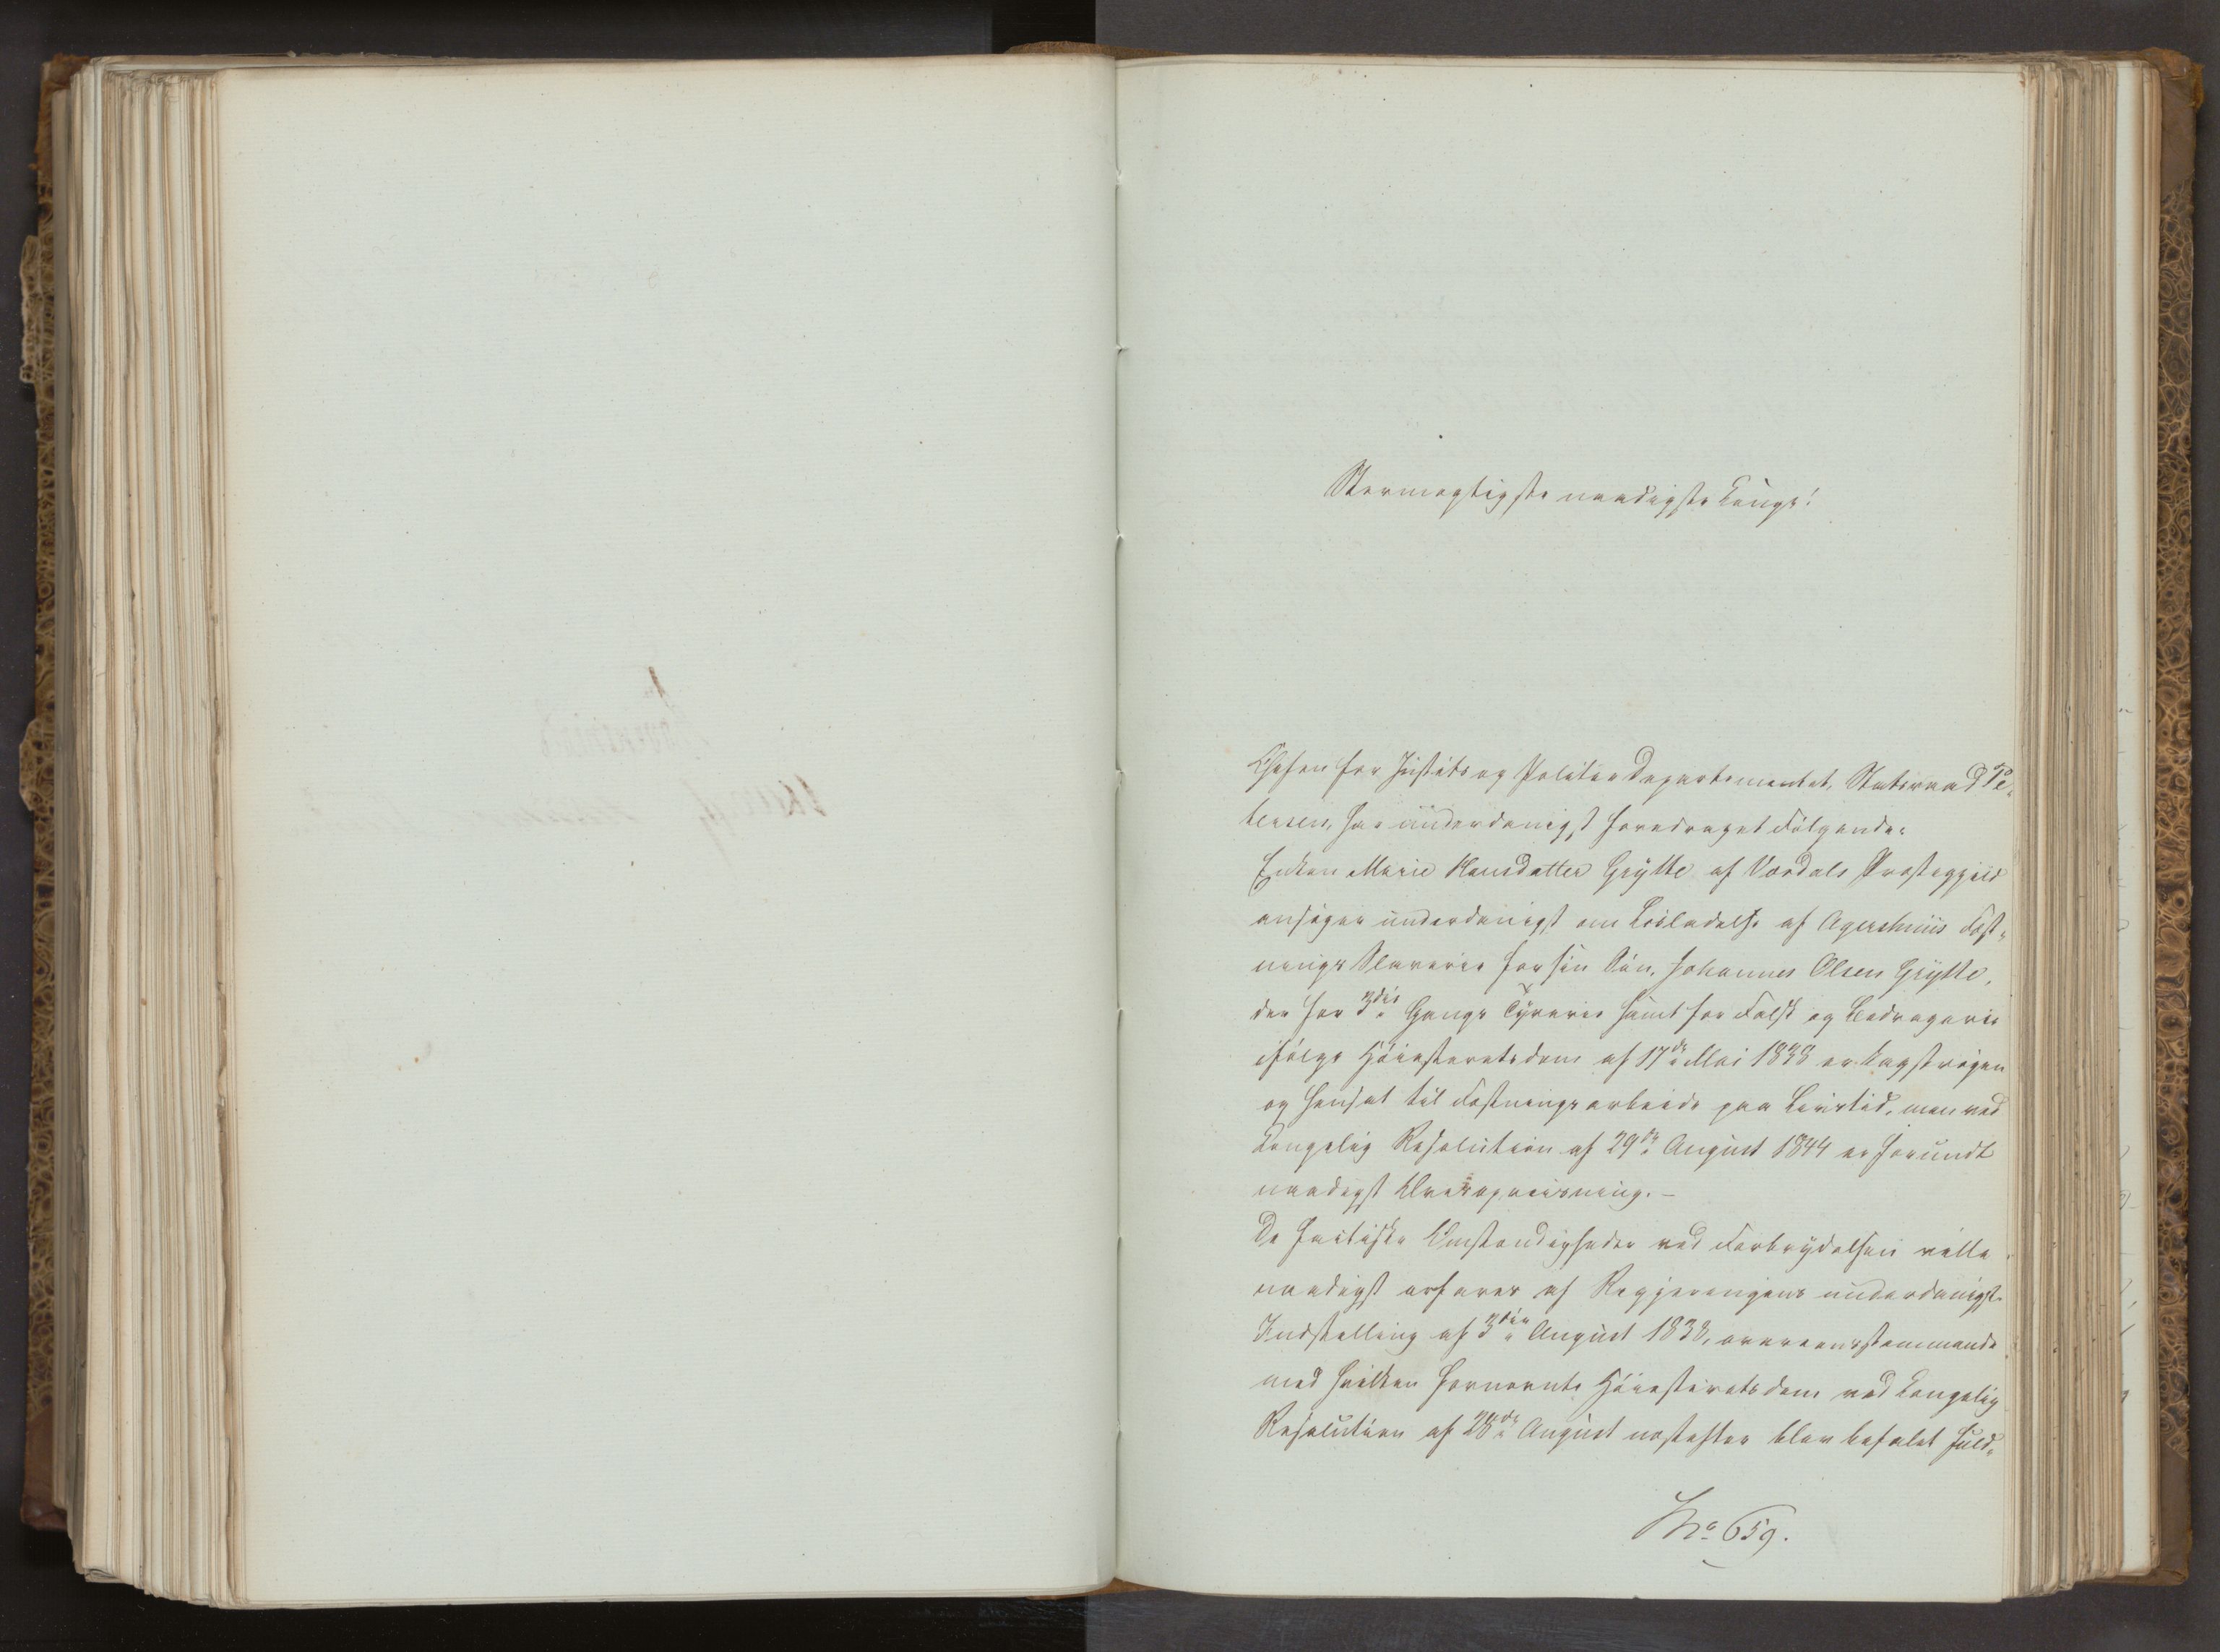 Stormægtigste naadigste Konge!
Chefen for Justits og Politie Departementet, Statsraad Pe-
tersen, har underdanigst foredraget Følgende:
Enken Marie Hansdatter Grytte af Værdals Præstegjeld
ansøger underdanigst om Løsladelse af Agershuus Fæst-
nings Slaverie for sin Søn, Johannes Olsen Grytte,
der for 3die Gangs Tyverie samt for Falsk og Bedragerie
ifølge Høiesteretsdom af 17de Mai 1838 er kagstrøgen
og hensat til Fæstningsarbeide paa Livstid, men ved
Kongelig Resolution af 29de August 1844 er forundt
naadigst
De factiske Omstændigheder ved Forbrydelsen ville
naadigst erfares af Regjeringens underdanigste
Indstilling af 3die August 1838, overeensstemmende
med hvilken fornævnte Høiesteretsdom ved Kongelig
Resolution af 28de August næstefter blev befalet fuld-
No 659.